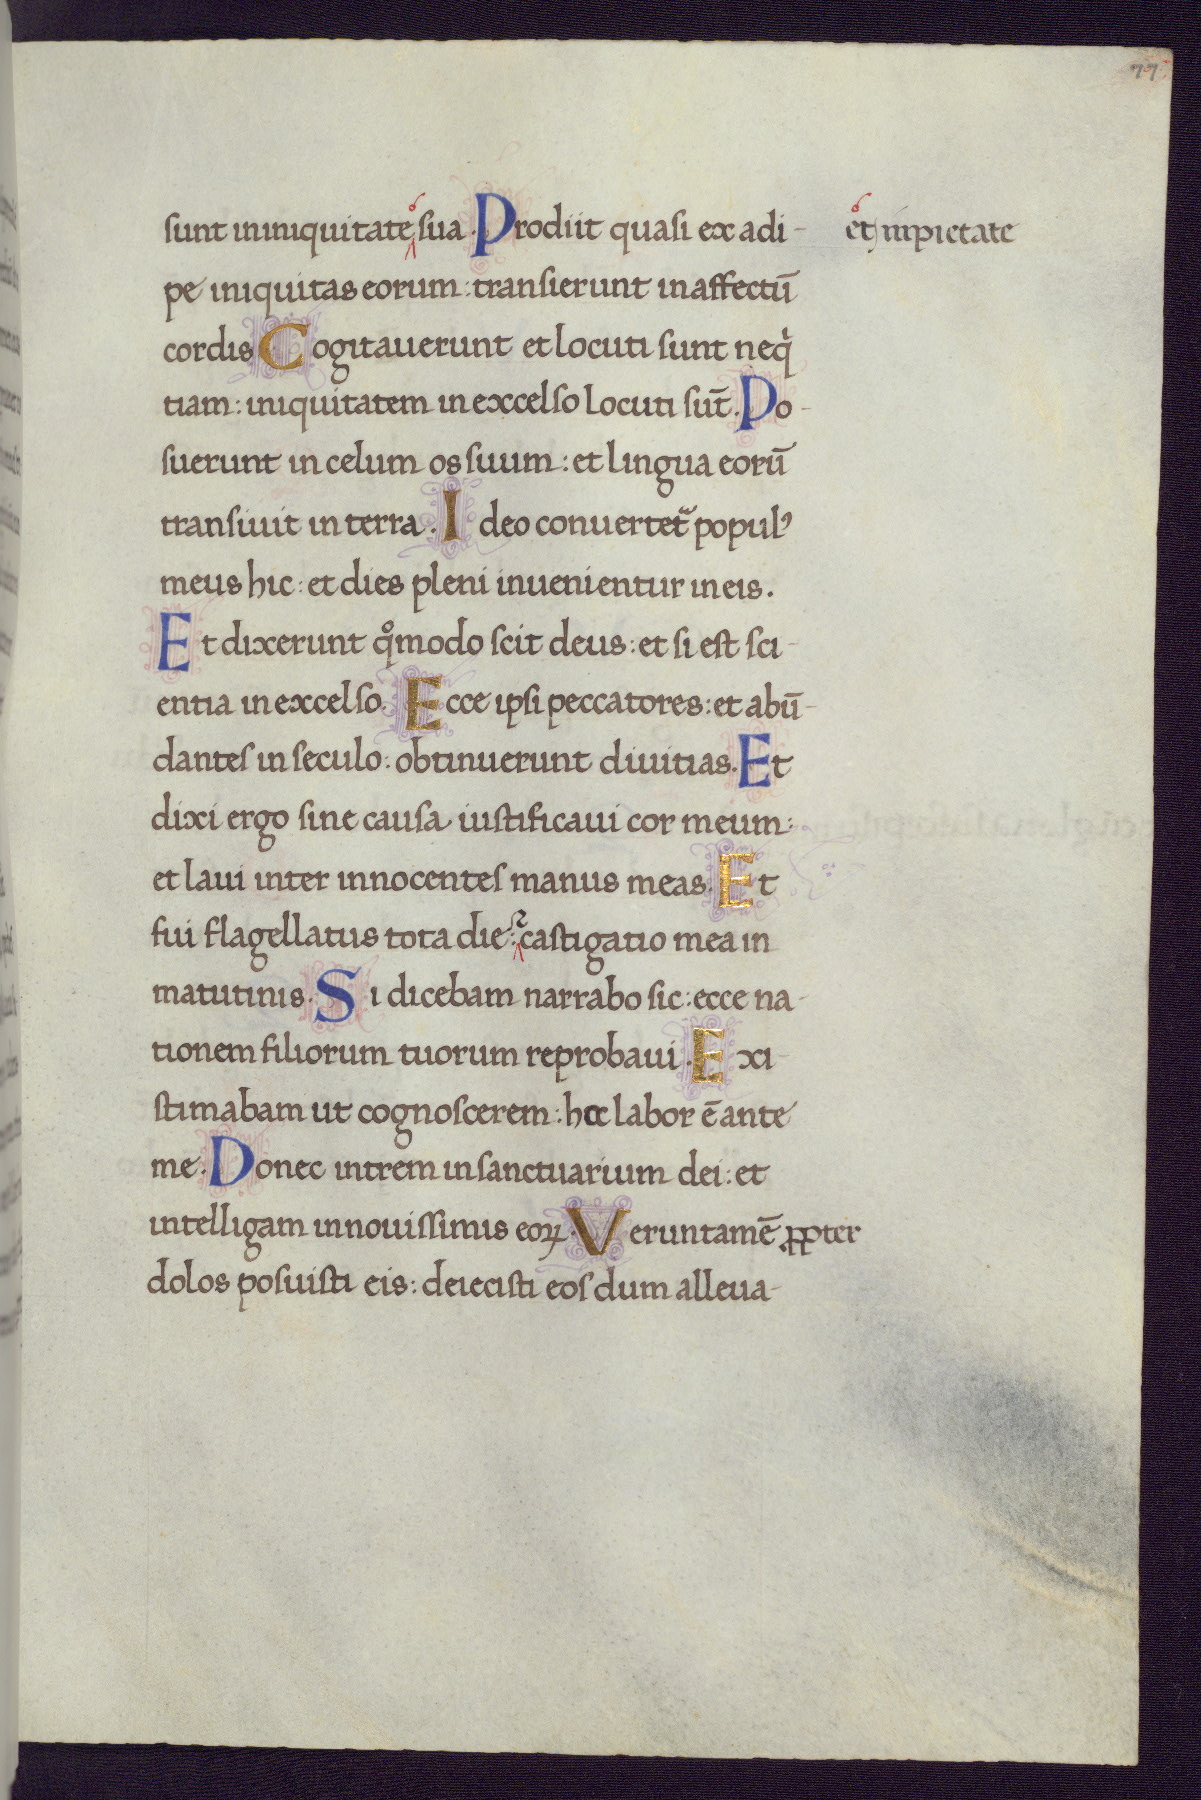 77
sunt in iniquitate sua. Prodiit quasi ex adi-
et inpietate
pe iniquitas eorum: transierunt in affectū
cordis Cogitauerunt et locuti sunt neqⁱ
tiam: iniquitatem in excelso locuti sūt. Po-
suerunt in celum os suum: et lingua eorū
transiuit in terra. Ideo conuertet᷑ populꝰ
meus hic: et dies pleni inuenientur in eis.
Et dixerunt qͦmodo scit deus: et si est sci-
entia in excelso. Ecce ipsi peccatores: et abū-
dantes in seculo: obtinuerunt diuitias. Et
dixi ergo sine causa iustificaui cor meum:
et laui inter innocentes manus meas. Et
fui flagellatus tota die: ⁊ castigatio mea in
matutinis. Si dicebam narrabo sic: ecce na-
tionem filiorum tuorum reprobaui. Exi-
stimabam ut cognoscerem: hoc labor ē ante
me. Donec intrem in sanctuarium dei: et
intelligam in nouissimis eoꝝ. Veruntamē ꝓpter
dolos posuisti eis: deiecisti eos dum alleua-